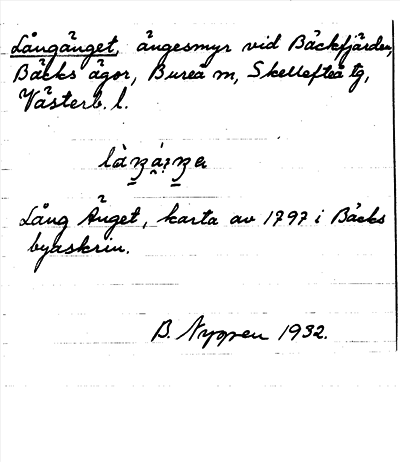 Långänget, ängesmyr vid Bäckfjärden,
Bäcks ägor, Bureå m, Skellefteå tg,
Västerb. l.
Lång Änget, karta av 1797 i Bäcks
byaskrin.
B. Nyppen 1932.